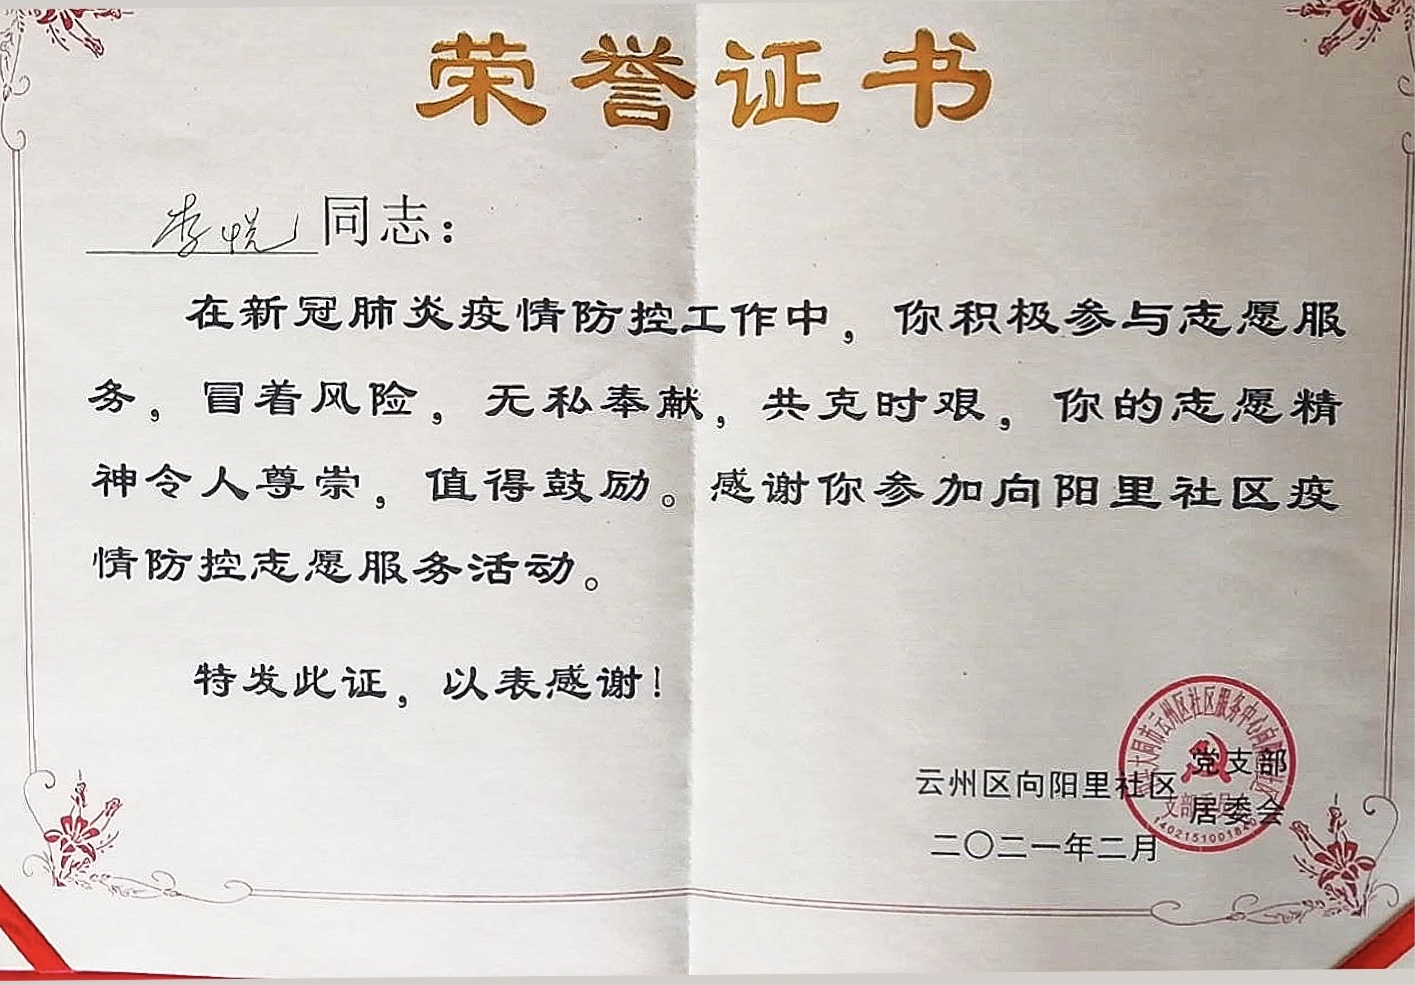 荣誉证书
李悦同志：
在新冠肺炎疫情防控工作中，你积极参与志愿服
务，冒着风险，无私奉献，共克时艰，你的志愿精
神令人尊崇，值得鼓励。感谢你参加向阳里社区疫
情防控志愿服务活动。
特发此证，以表感谢！
云州区向阳里社区 党支部
居委会
二〇二一年二月
大同市云州区社区服务中心向阳里社区
支部委员会